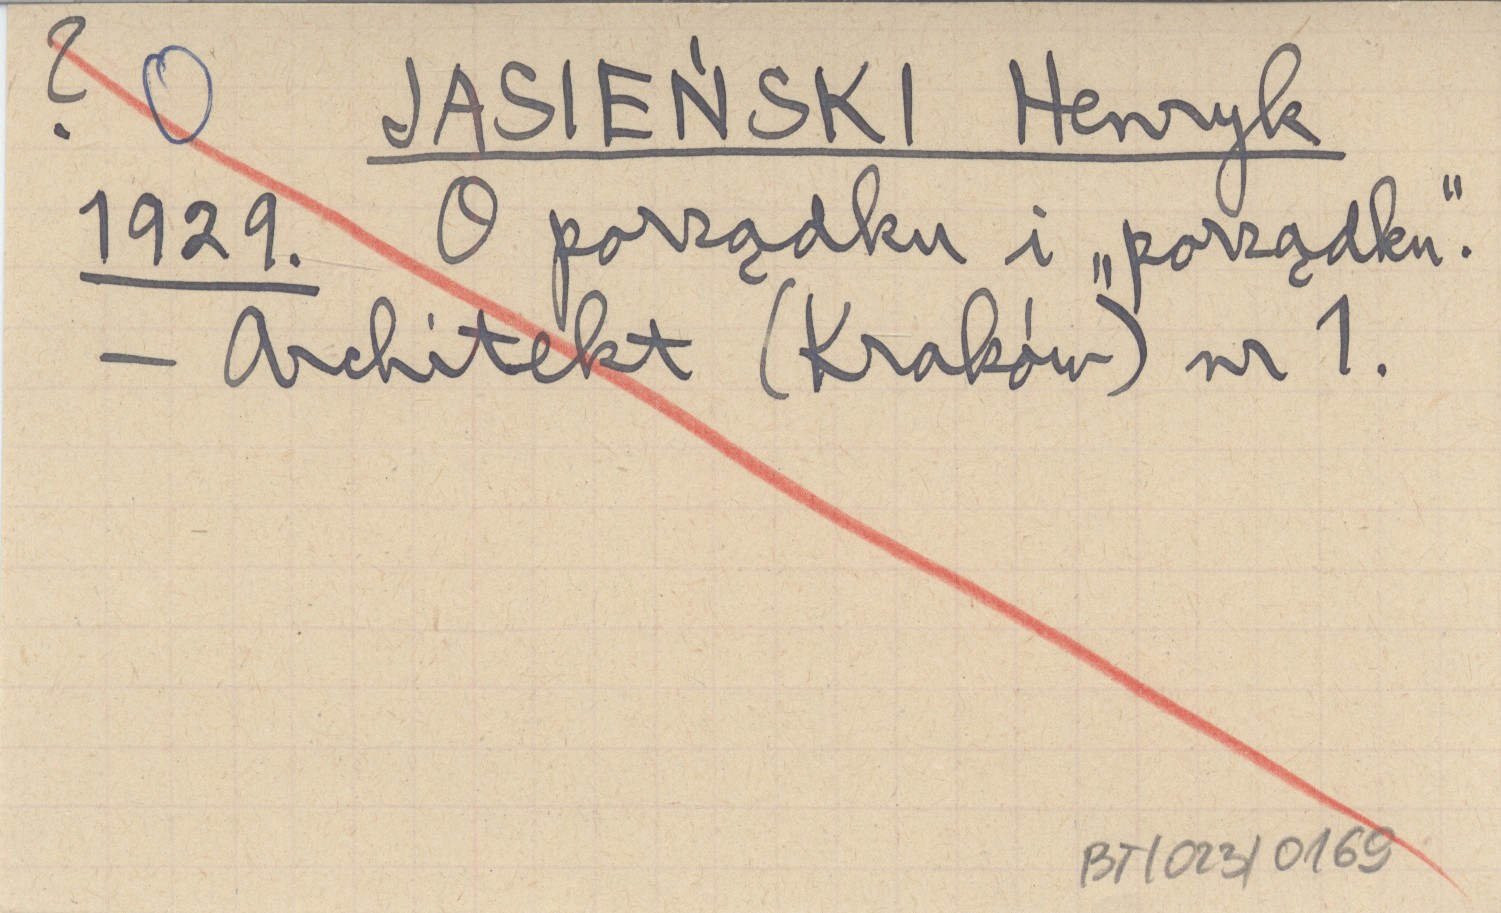 ? O JASIEŃSKI Henryk
1929. O porządku i „porządku".
— Architekt (Kraków) nr 1.
BT/023/0169